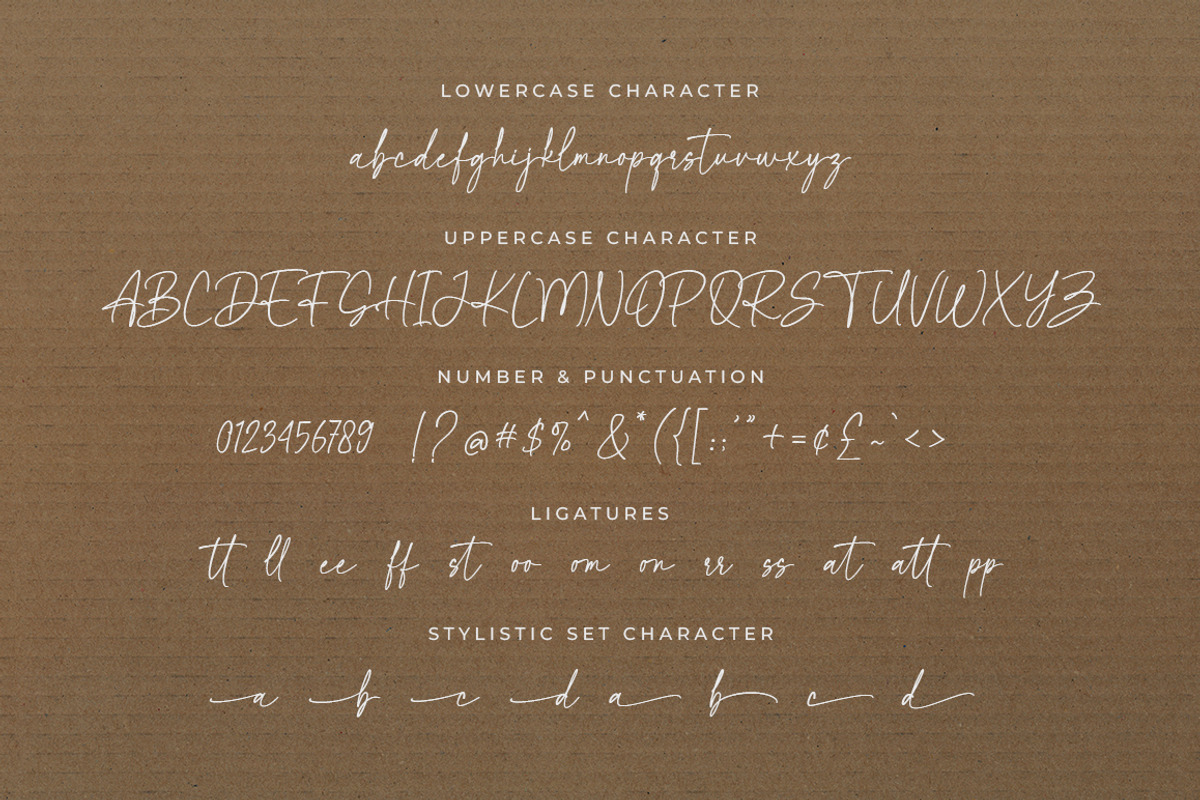 LOWERCASE CHARACTER
abcdefghijklmnopqrstuvwxyz
UPPERCASE CHARACTER
ABCDEFGHIJKLMNOPQRSTUVWXYZ
NUMBER & PUNCTUATION
0123456789 !?@#$%^&*({[:;'"+=¢£~`<>
LIGATURES
tt ll ee ff st oo om on rr ss at att pp
STYLISTIC SET CHARACTER
a b c d a b c d